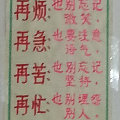 再烦:
也别忘记
微笑
再急:
也要注意
语气
再苦:
也别忘记
坚持
再忙:
也别